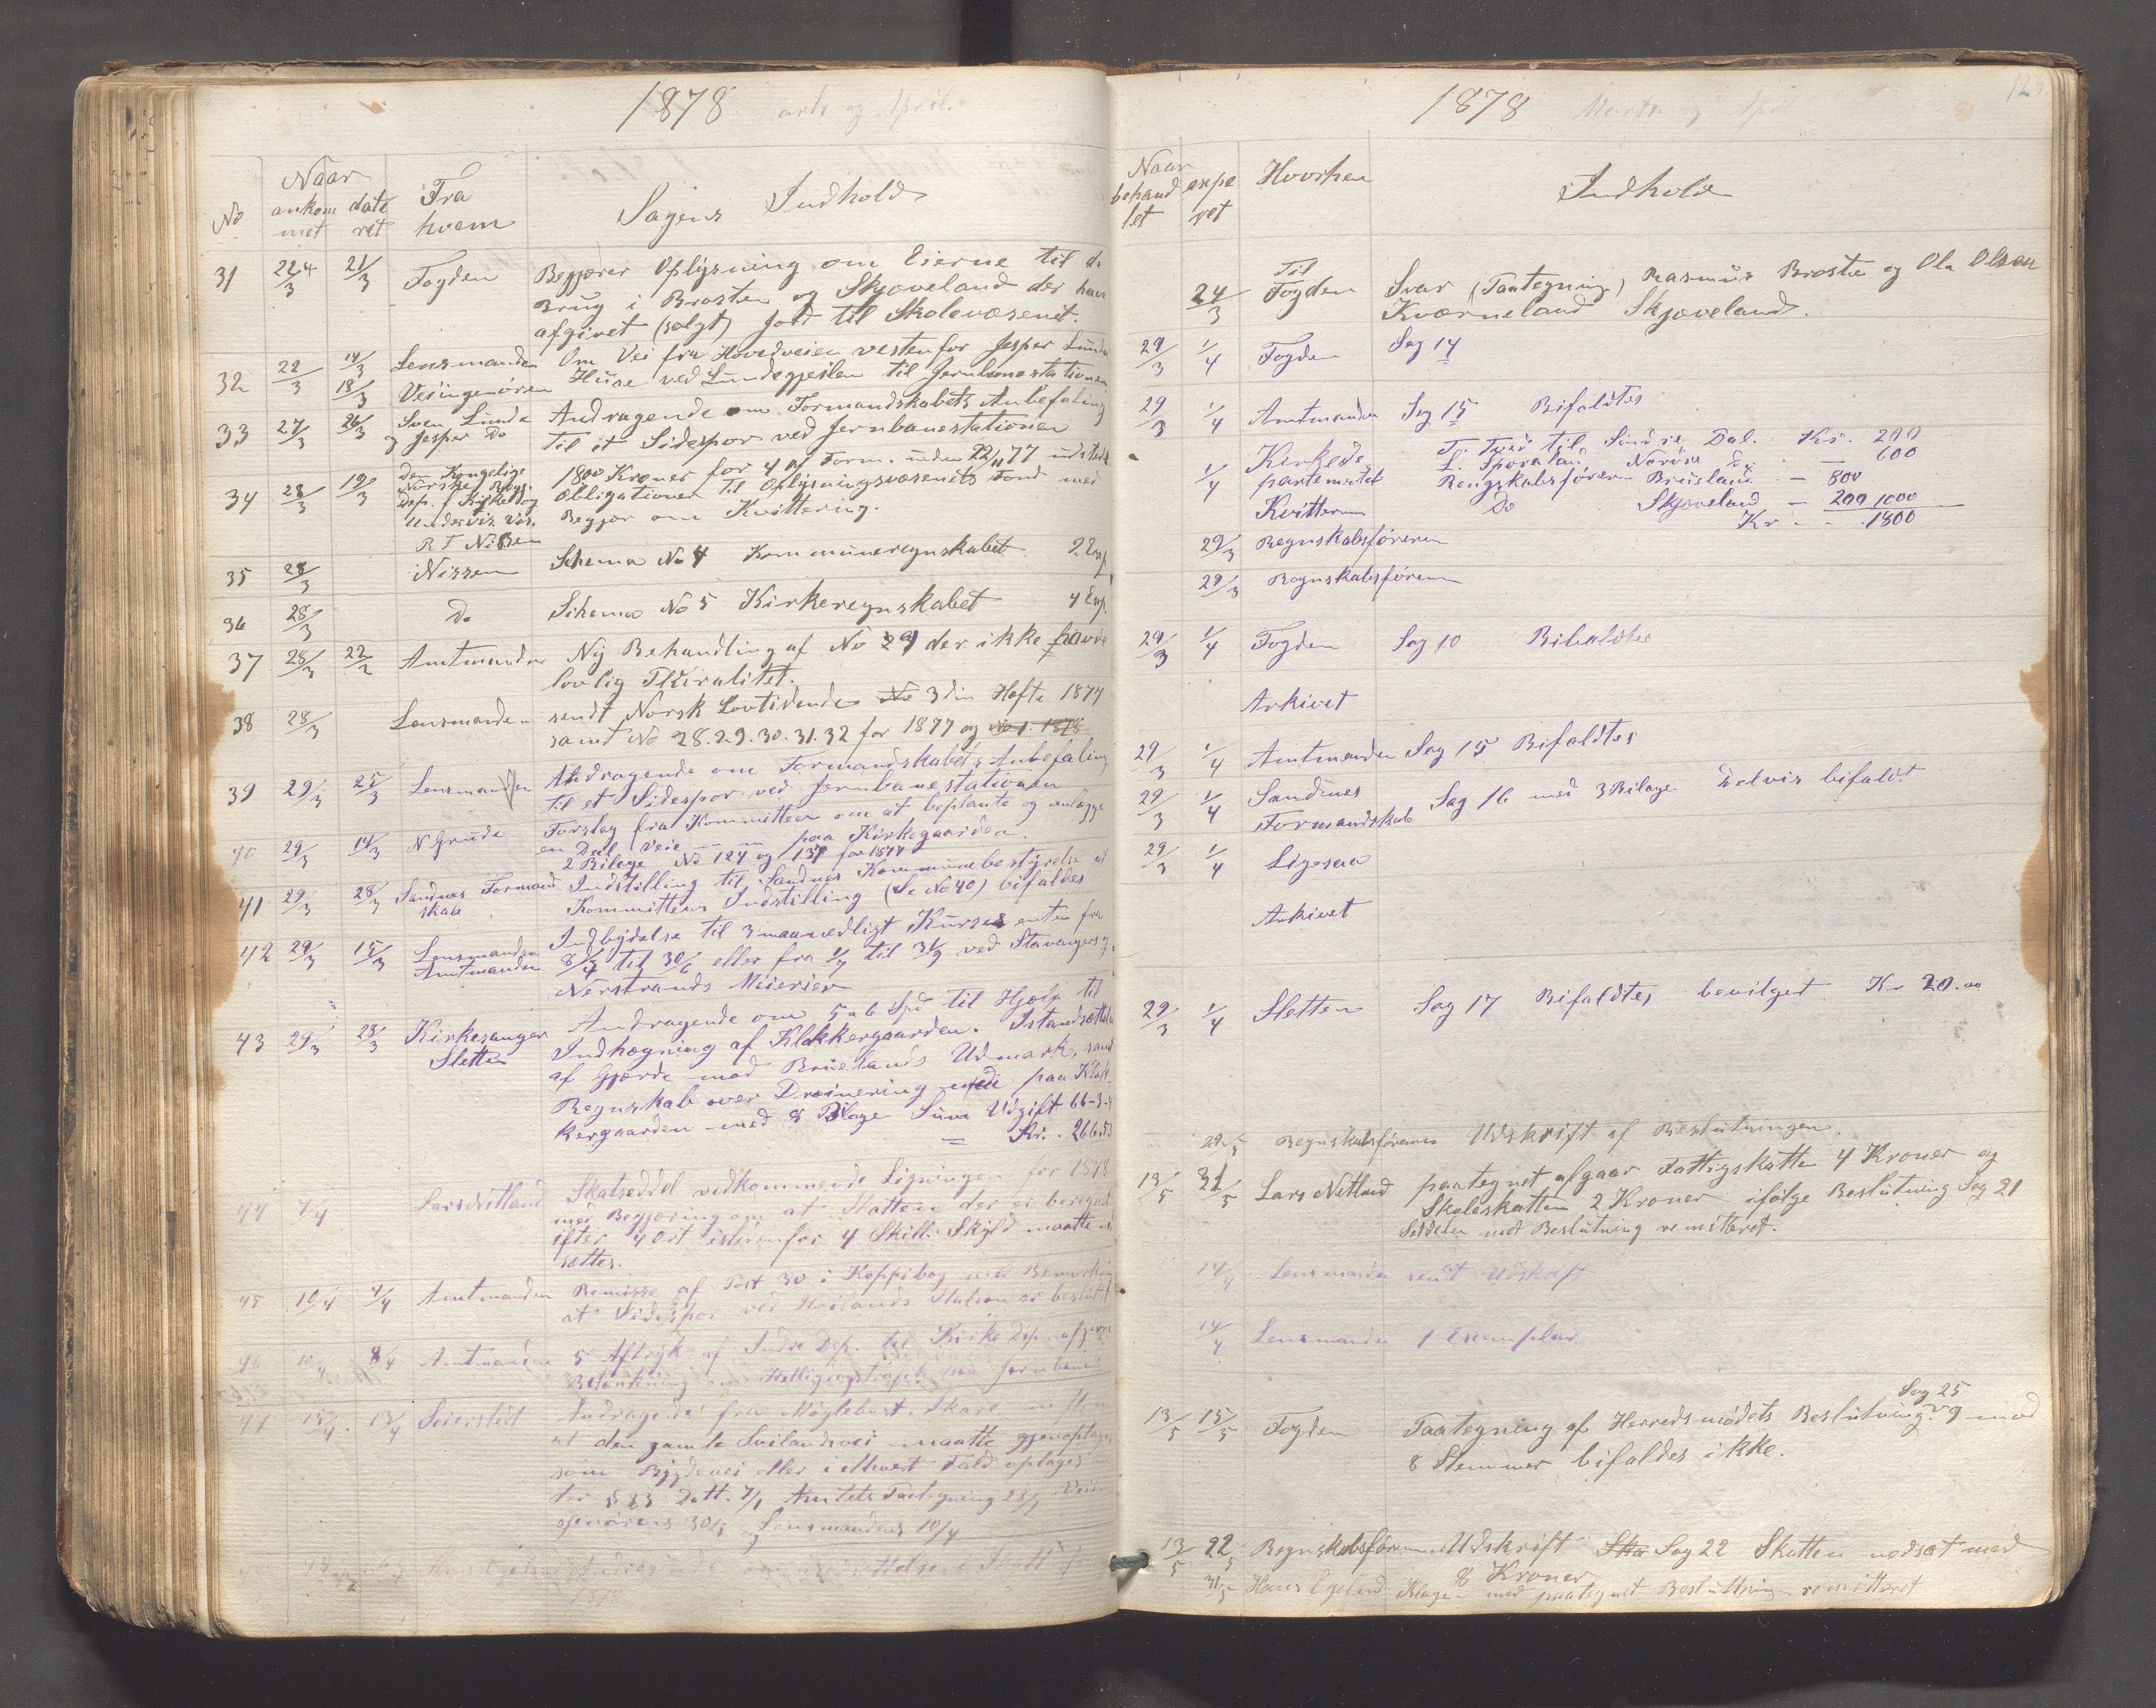 1878 Marts og April.
No
Naar
ankommet
dateret
Fra hvem
Sagens Indhold
31 22/3 4 21/3 Fogden Begjærer Oplysning om Eierne til de
Brug i Brosten og Skjæveland der have
afgivet (solgt) Jord til Skolevæsenet.
32 22/3 14/3 Lensmanden Om Vei fra Hovedveien vestenfor Jesper Lunde
18/3 Veiingeniøren Huse ved Lundegjeilen til Jernbanestationen
33 27/3 26/3 Sven Lunde Andragende om Formandskabets Anbefaling
og Jesper Do til et Sidespor ved Jernbanestationen
34 28/3 19/3 Den Kongelige 1800 Kroner for 4 af Form. under 22/11 77 udstedte
Norske Regj. Obligationer til Oplysningsvæsenets Fond med
Dep. f Kirke og
Undervis. Væs. Begjær om Kvittering.
R T Nissen
35 28/3 Nissen Schema No 4 Kommuneregnskabet 2 Exp.
36 28/3 Do Schema No 5 Kirkeregnskabet 4 Exp.
37 28/3 22/2 Amtmanden Ny Behandling af No 29 der ikke havde
lovlig Pluralitet.
38 28/3 Lensmanden sendt Norsk Lovtidende No 3die Hefte 1877
samt No 28.29.30.31.32 for 1877 og No 1. 1878
39 29/3 25/3 Lensmanden Andragende om Formandskabets Anbefaling
til et Sidespor ved Jernbanestationen
40 29/3 14/3 N Grude Forslag fra Kommitteen om at beplante og anlægge
en Deel Veie paa Kirkegaarden.
2 Bilage No 124 og 137 for 1877
41 29/3 28/3 Sandnæs Formand Indstilling til Sandnes Kommunebestyrelse at
skab Kommitteens Indstilling (Se No 40) bifaldes
42 29/3 15/3 Lensmanden Indbydelse til 3 maanedligt Kurser enten fra
Amtmanden 8/4 til 30/6 eller fra 1/7 til 31/9 ved Stavangers og
Nerstrands Meierier
43 29/3 28/3 Kirkesanger Andragende om 5 a 6 Spd til Hjælp til
Sletten Indhegning af Klokkergaarden. Istandsættelse
af Gjærde mod Bruelands Udmark, samt
Regnskab over Drainering nede paa Klok
kergaarden med 8 Bilage Suma Udgift 66-3-
= Kr. 266
44 7/4 Lars Nitland Skatseddel vedkommende Ligningen for 1878
med Begjæring om at Skatten der er beregnet
efter 4 Ort istedenfor 4 Skill. Skyld maatte ned
sættes.
45 10/4 4/4 Amtmanden Remisse af Post 30 i Koppibog med Bemærkning
at Sidespor ved Høilands Station er besluttet
46 10/4 8/4 Amtmanden 5 Aftryk af Indre Dep. til Kirke Dep. afgivne
Betænkning om Helligdagstrafik paa Jernbane
47 15/4 13/4 Seierstedt Andragende fra Møglebust, Skare m flere
at den gamle Svilandsvei maatte gjenoptages
som Bygdevei eller i ethvert Fald optages
ter § 23 Datt. 7/1 Amtets Paategning 23/1 Veiin
geniørens 30/1 og Lensmandens 10/4
1878 Marts og April
Naar
behandlet
expe ret
Hvorhen
Indhold
24/3 Til Fogden Svar (Paategning) Rasmus Brosten og Ola Olsen
Kværneland Skjæveland.
29/3 1/4 Fogden Sag 14
29/3 1/4 Amtmanden Sag 15 Bifaldtes
1/4 Kirkede T. Tved til Søndre Dal. Kr. 200
partementet L. Sporaland Nordre Do — 600
Kvitteren Rengskabsføreren Brueland — 800
Do Skjæveland — 200 1000
Kr. — 1800
29/3 Regnskabsføreren
29/3 Regnskabsføreren
29/3 1/4 Fogden Sag 10 Bifaldtes
Arkivet
29/3 1/4 Amtmanden Sag 15 Bifaldtes
29/3 1/4 Sandnes
Formandskab Sag 16 med 3 Bilage. Delvis bifaldt
29/3 1/4 Ligesaa
Arkivet
29/3 1/4 Sletten Sag 17 Bifaldtes bevilget Kr 20.00
29/5 Regnskabsføreren Udskrift af Beslutningen.
13/5 31/5 Lars Nitland paategnet afgaar Fattigskatten 4 Kroner og
Skoleskatten 2 Kroner ifølge Beslutning Sag 21
Seddelen med Beslutning remitteret.
14/4 Lensmanden sendt Udskrift
14/4 Lensmanden 1 Exemplar
13/5 15/5 Fogden Paategning af Herredsmødets Beslutning Sag 25 og mod
8 Stemmer bifaldes ikke.
13/5 22/5 Regnskabsføreren Udskrift Ska Sag 22 Skatten nedsat med
8 Kroner
31/5 Hans Egeland Klage med paategnet Beslutning remitteret